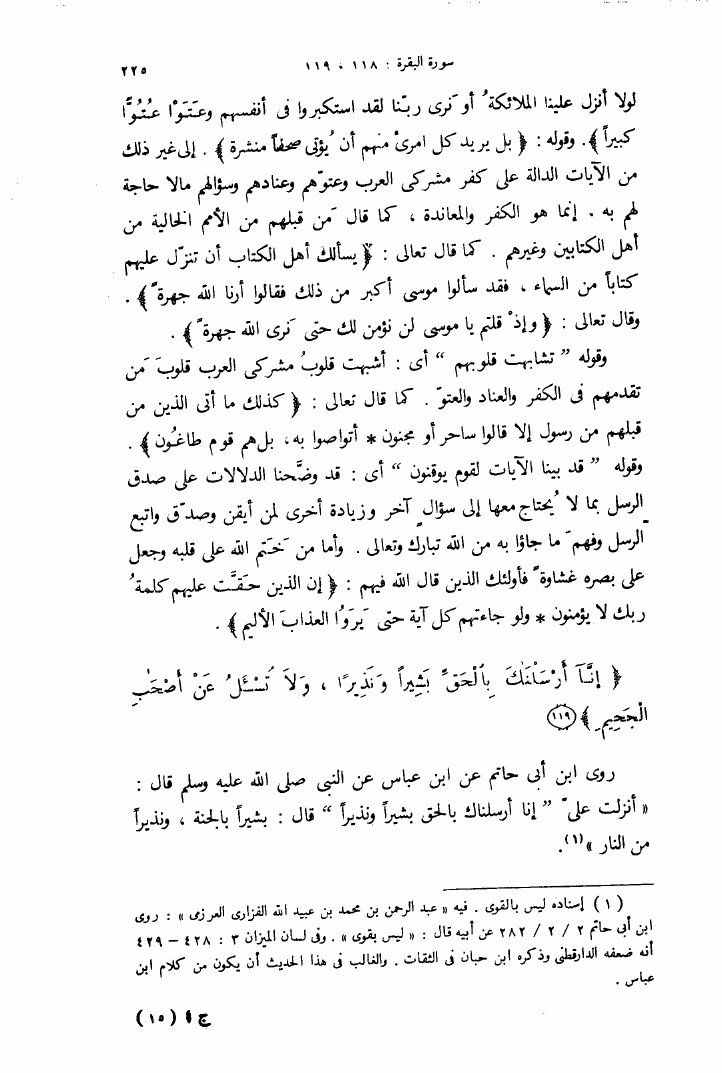 سورة البقرة : ١١٨ ، ١١٩ ٢٢٥
لولا أنزل علينا الملائكةُ أو نَرى ربّنا لقد استكبروا فى أنفسهم وعَتَوْا عُتُوًّا
كبيراً ﴾. وقوله : ﴿ بل يريد كل امرئ منهم أن يُؤتى صحفاً منشرة ﴾ . إلى غير ذلك
من الآيات الدالة على كفر مشركى العرب وعتوّهم وعنادهم وسؤالهم مالا حاجة
لهم به . إنما هو الكفر والمعاندة ، كما قال مَن قبلهم من الأمم الخالية من
أهل الكتابين وغيرهم . كما قال تعالى : ﴿ يسألك أهل الكتاب أن تنزّل عليهم
كتاباً من السماء ، فقد سألوا موسى أكبر من ذلك فقالوا أرنا الله جهرةً ﴾ .
وقال تعالى : ﴿ وإذْ قلتم يا موسى لن نؤمن لك حتى نَرى الله جهرةً ﴾ .
وقوله ” تشابهت قلوبهم “ أى : أشبهت قلوبُ مشركى العرب قلوبَ مَن
تقدمهم فى الكفر والعناد والعتوّ . كما قال تعالى : ﴿ كذلك ما أتى الذين من
قبلهم من رسول إلا قالوا ساحر أو مجنون * أتواصوا به، بل هم قوم طاغُون ﴾ .
وقوله ” قد بينا الآيات لقوم يوقنون “ أى : قد وضَّحنا الدلالات على صدق
الرسل بما لا يُحتاج معها إلى سؤالٍ آخر وزيادة أخرى لمن أيقن وصدّق واتبع
الرسل وفهمَ ما جاؤا به من الله تبارك وتعالى . وأما من خَتم الله على قلبه وجعل
على بصره غشاوةً فأولئك الذين قال الله فيهم : ﴿ إن الذين حَقَّت عليهم كلمةُ
ربك لا يؤمنون * ولو جاءتهم كل آية حتى يَرَوُا العذابَ الأليم ﴾ .
﴿ إِنَّآ أَرْسَلْنَٰكَ بِٱلْحَقِّ بَشِيراً وَنَذِيرًا ، وَلَا تُسْـَٔلُ عَنْ أَصْحَٰبِ
الْجَحِيمِ ﴾ ١١٩
روى ابن أبى حاتم عن ابن عباس عن النبى صلى الله عليه وسلم قال :
« أنزلت علىّ ” إنا أرسلناك بالحق بشيراً ونذيراً “ قال : بشيراً بالجنة ، ونذيراً
من النار » (١).
( ١ ) إسناده ليس بالقوى . فيه « عبد الرحمن بن محمد بن عبيد الله الفزارى العرزمى » : روى
ابن أبى حاتم ٢ / ٢ / ٢٨٢ عن أبيه قال : « ليس بقوى » . وفى لسان الميزان ٣ : ٤٢٨ – ٤٢٩
أنه ضعفه الدارقطنى وذكره ابن حبان فى الثقات . والغالب فى هذا الحديث أن يكون من كلام ابن
عباس .
ج ١ ( ١٥ )